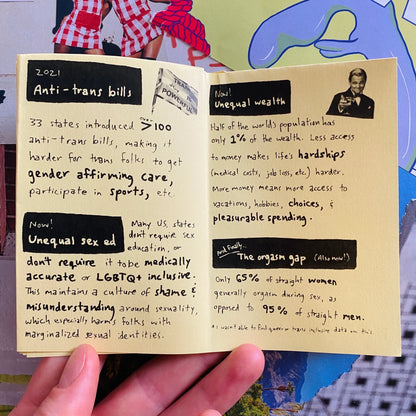 2021
Anti-trans bills
TRANS
POWERFUL
33 states introduced over >100
anti-trans bills, making it
harder for trans folks to get
gender affirming care,
participate in sports, etc.
Now!
Unequal sex ed
Many US states
don't require sex
education, or
don't require it to be medically
accurate or LGBTQ+ inclusive.
This maintains a culture of shame &
misunderstanding around sexuality,
which especially harms folks with
marginalized sexual identities.
Now!
Unequal wealth
Half of the world's population has
only 1% of the wealth. Less access
to money makes life's hardships
(medical costs, job loss, etc.) harder.
More money means more access to
vacations, hobbies, choices, &
pleasurable spending.
And finally...
The orgasm gap (Also now!)
Only 65% of straight women
generally orgasm during sex, as
opposed to 95% of straight men.